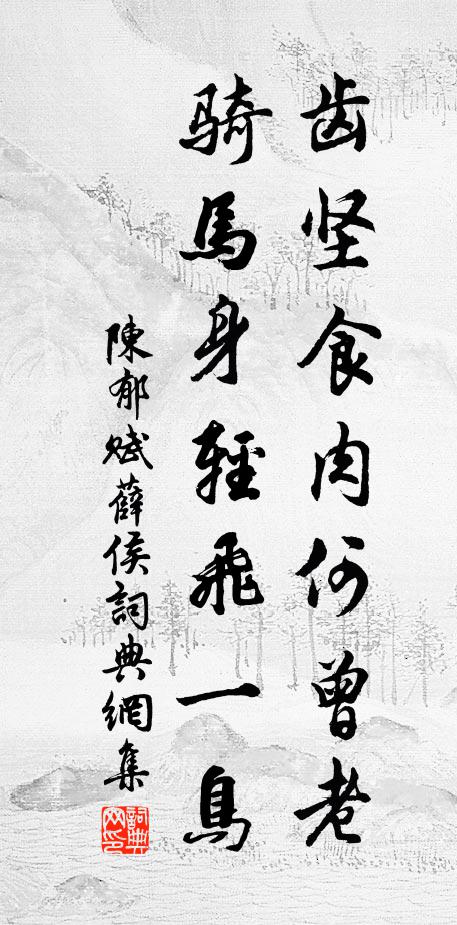 齿坚食肉何曾老
骑馬身輕飛一鳥
陳郁赋薛侯詞典網集
詞典
网印